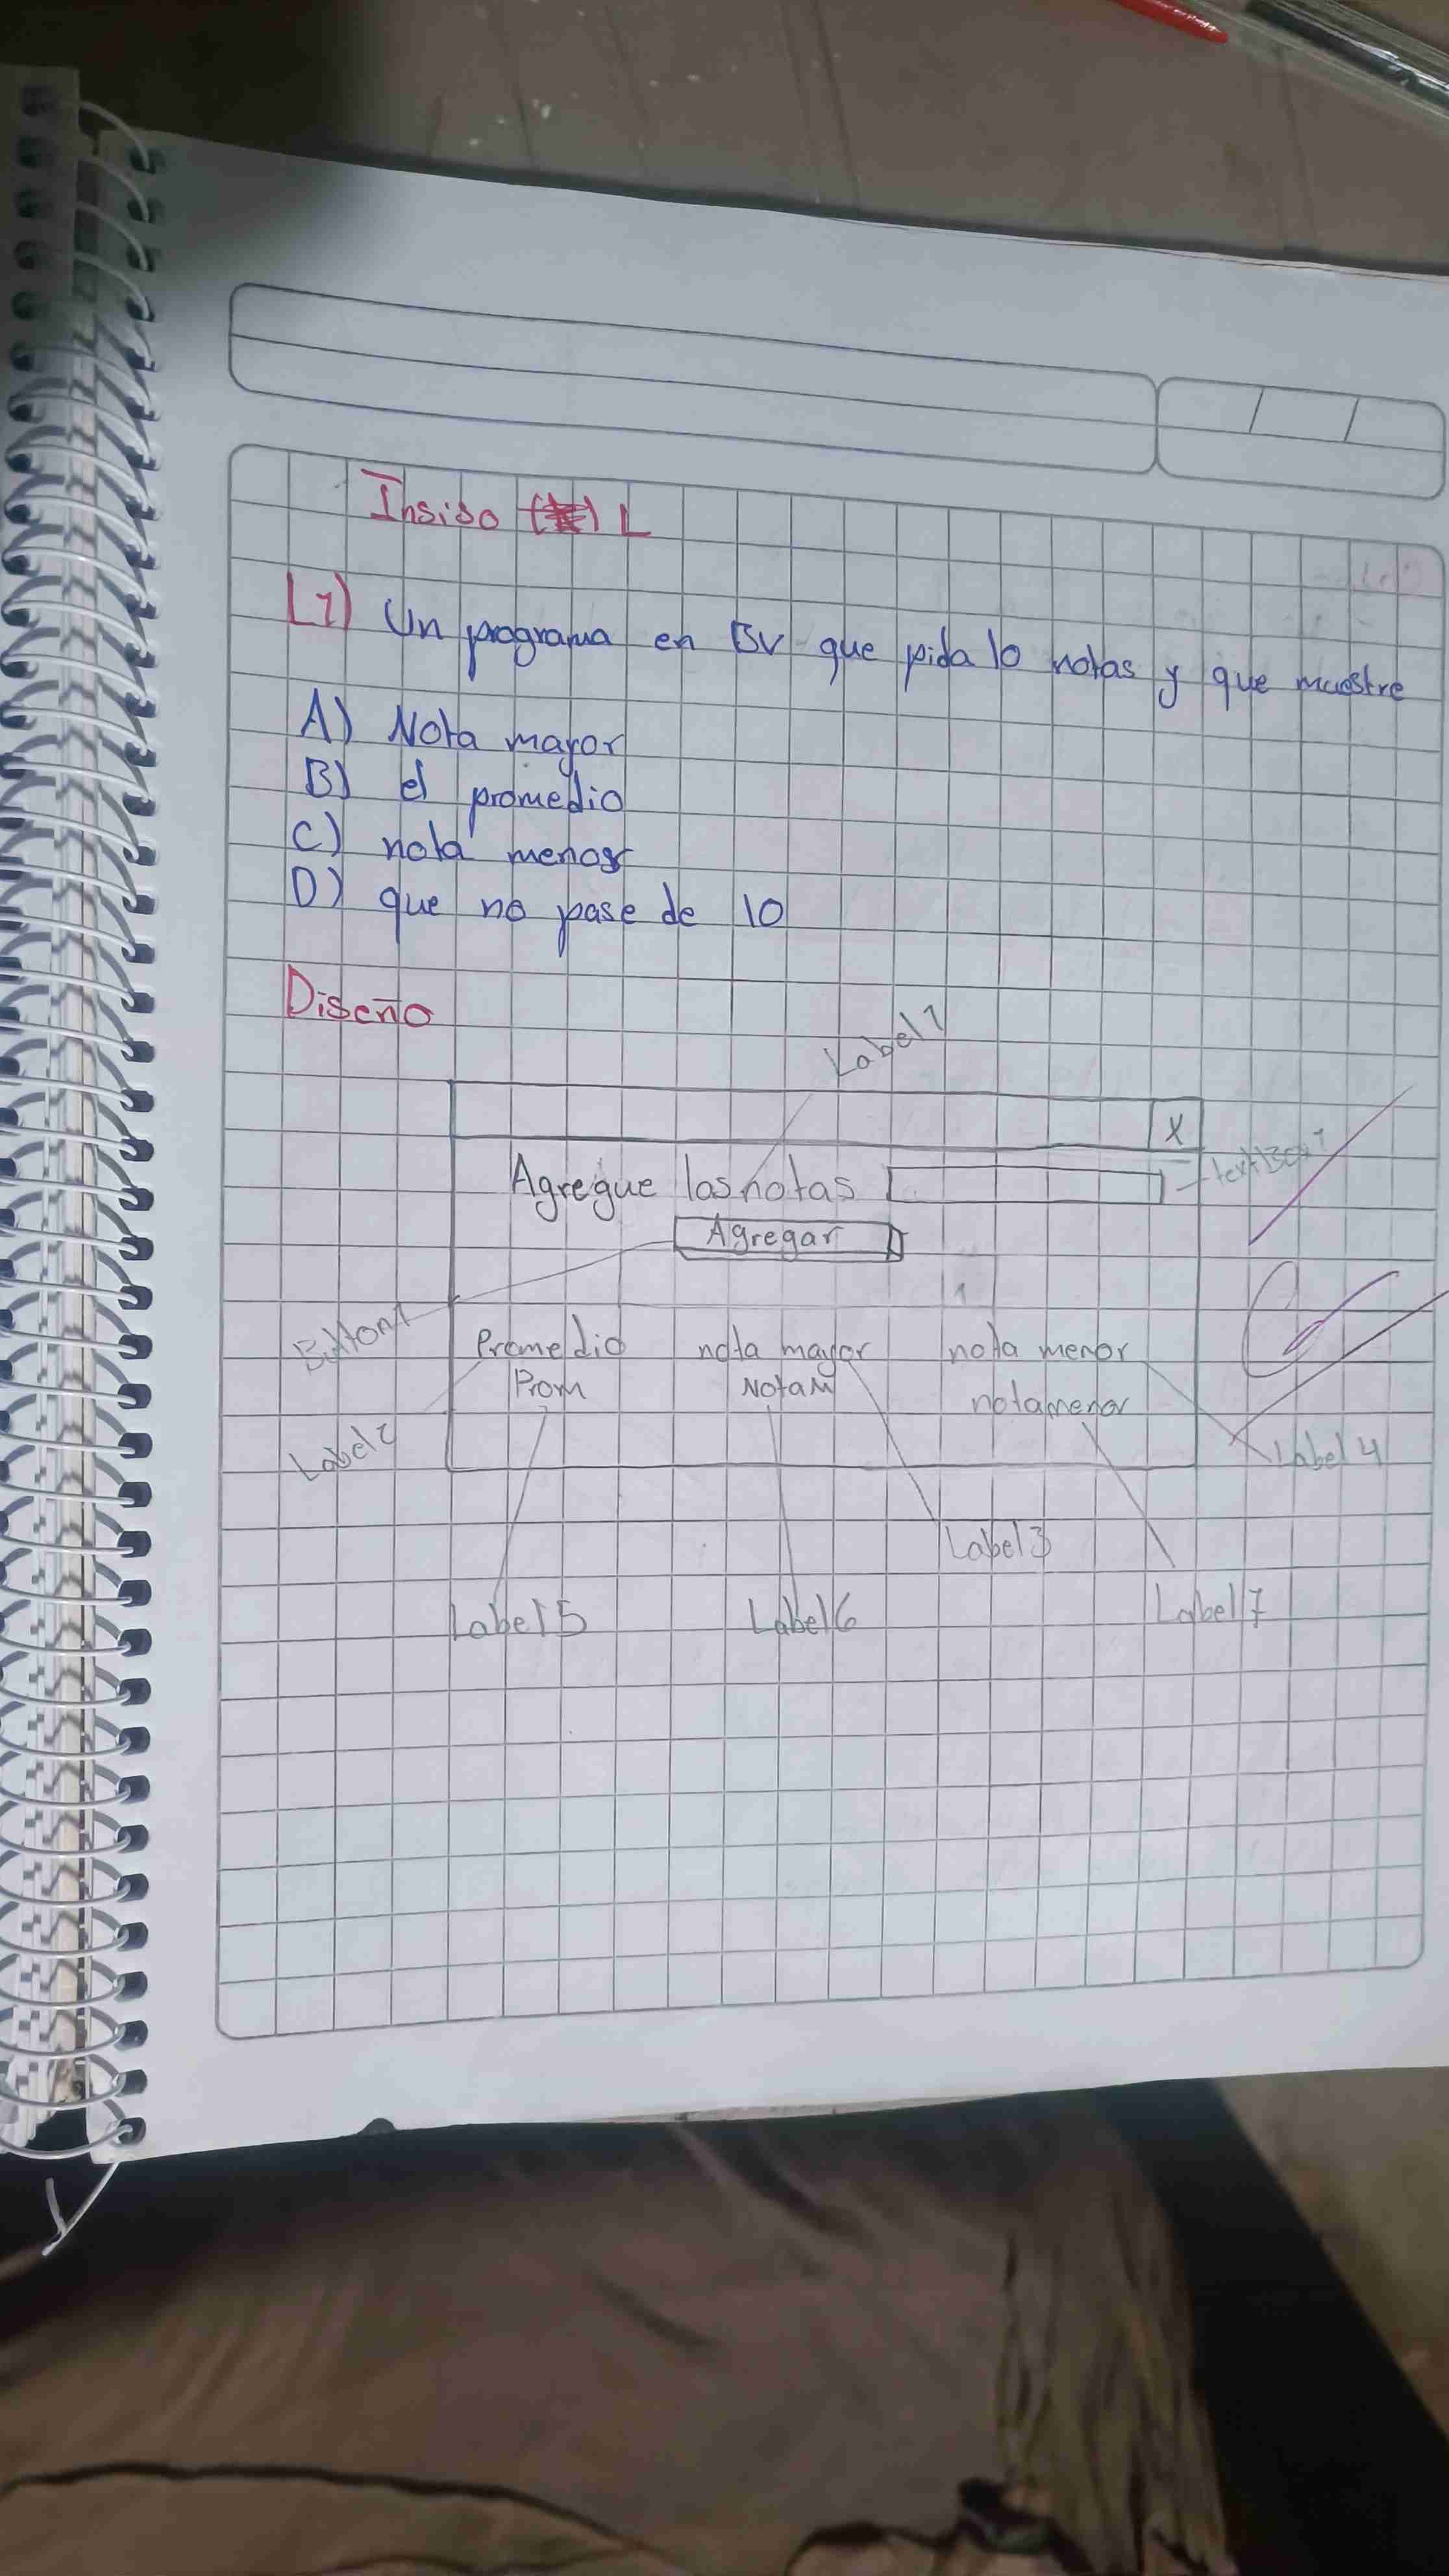 Insiso L
L1) Un programa en BV que pida 10 notas y que muestre
A) Nota mayor
B) el promedio
C) nota menor
D) que no pase de 10
Diseño
Label1
X
Agregue las notas
textBox1
Agregar
Button1
Promedio nota mayor nota menor
Prom NotaM notamenor
Label2
Label4
Label3
Label5 Label6 Label7